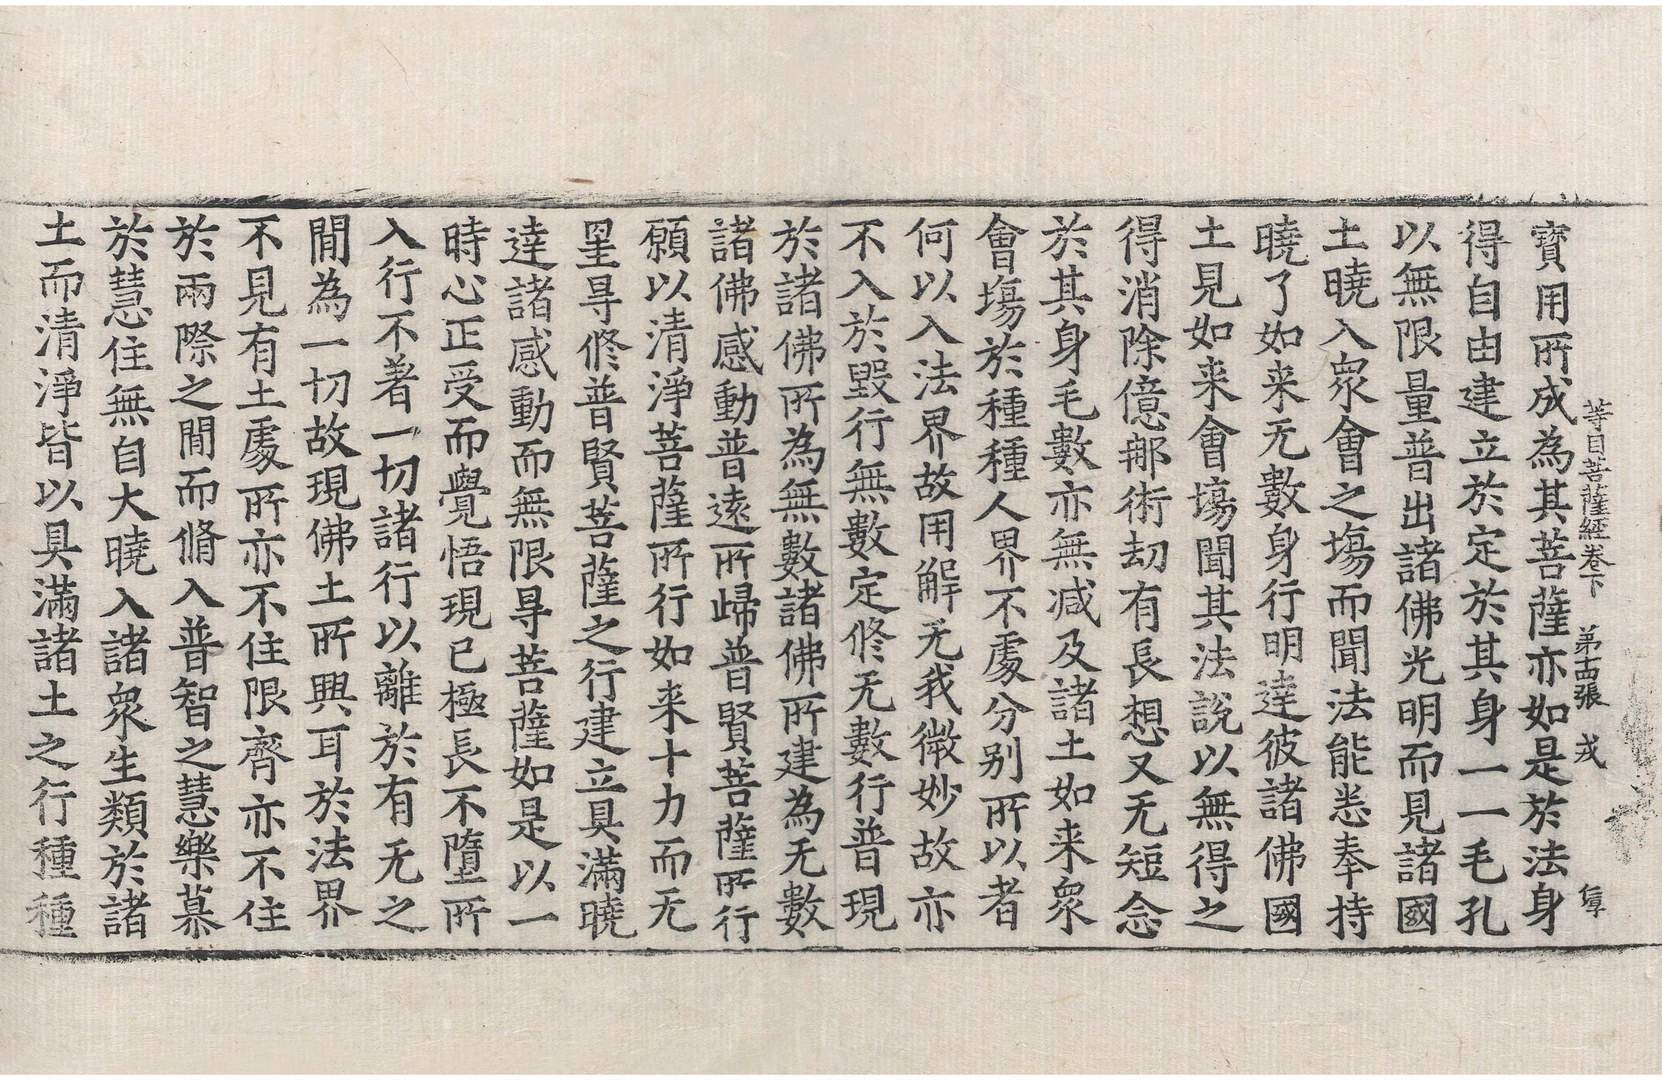 等目菩薩經卷下　第十四張　戎　
寶用所成為其菩薩亦如是於法身
得自由建立於定於其身一一毛孔
以無限量普出諸佛光明而見諸國
土曉入衆會之場而聞法能悉奉持
曉了如来无數身行明達彼諸佛國
土見如来會塲聞其法說以無得之
得消除億那術劫有長想又无短念
於其身毛數亦無减及諸土如来衆
會塲於種種人界不處分别所以者
何以入法界故用解无我微妙故亦
不入於毀行無數定修无數行普現
於諸佛所為無數諸佛所建為无數
諸佛感動普遠所歸普賢菩薩所行
願以清淨菩薩所行如来十力而无
㝵㝵修普賢菩薩之行建立具滿曉
達諸感動而無限㝵菩薩如是以一
時心正受而覺悟現已極長不墮所
入行不著一切諸行以離於有无之
閒為一切故現佛土所興耳於法界
不見有土處所亦不住限齊亦不住
於兩際之閒而脩入普智之慧樂慕
於慧住無自大曉入諸衆生類於諸
土而清淨皆以具滿諸土之行種種